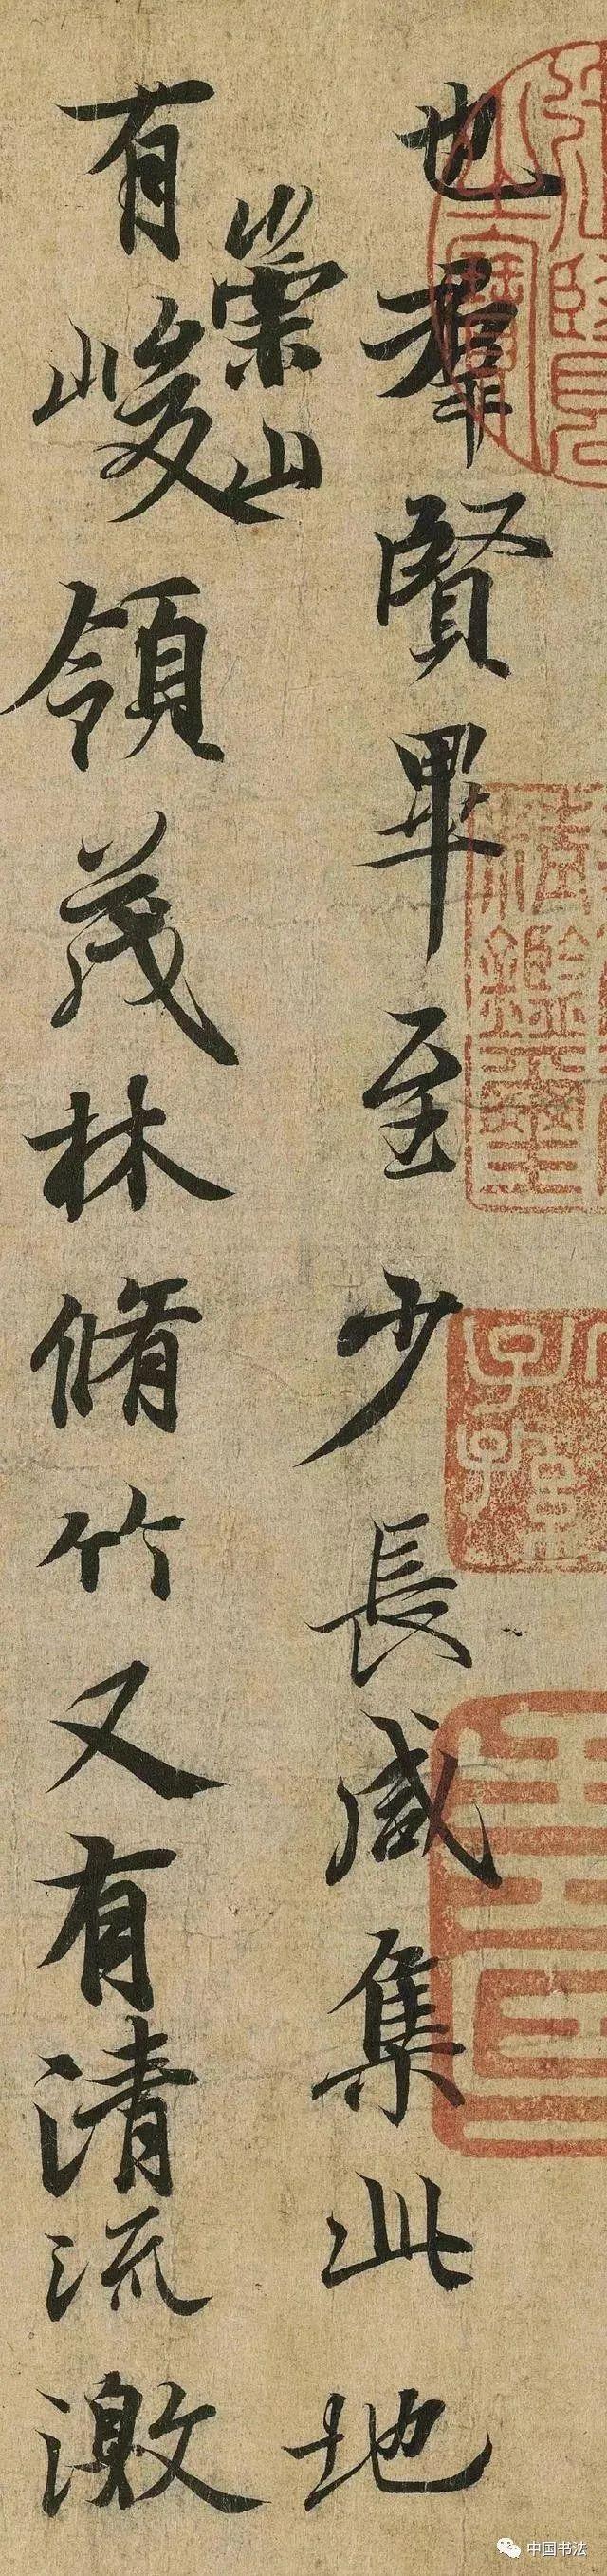 也羣賢畢至少長咸集此地
有崇山峻領茂林脩竹又有清流激
中国书法